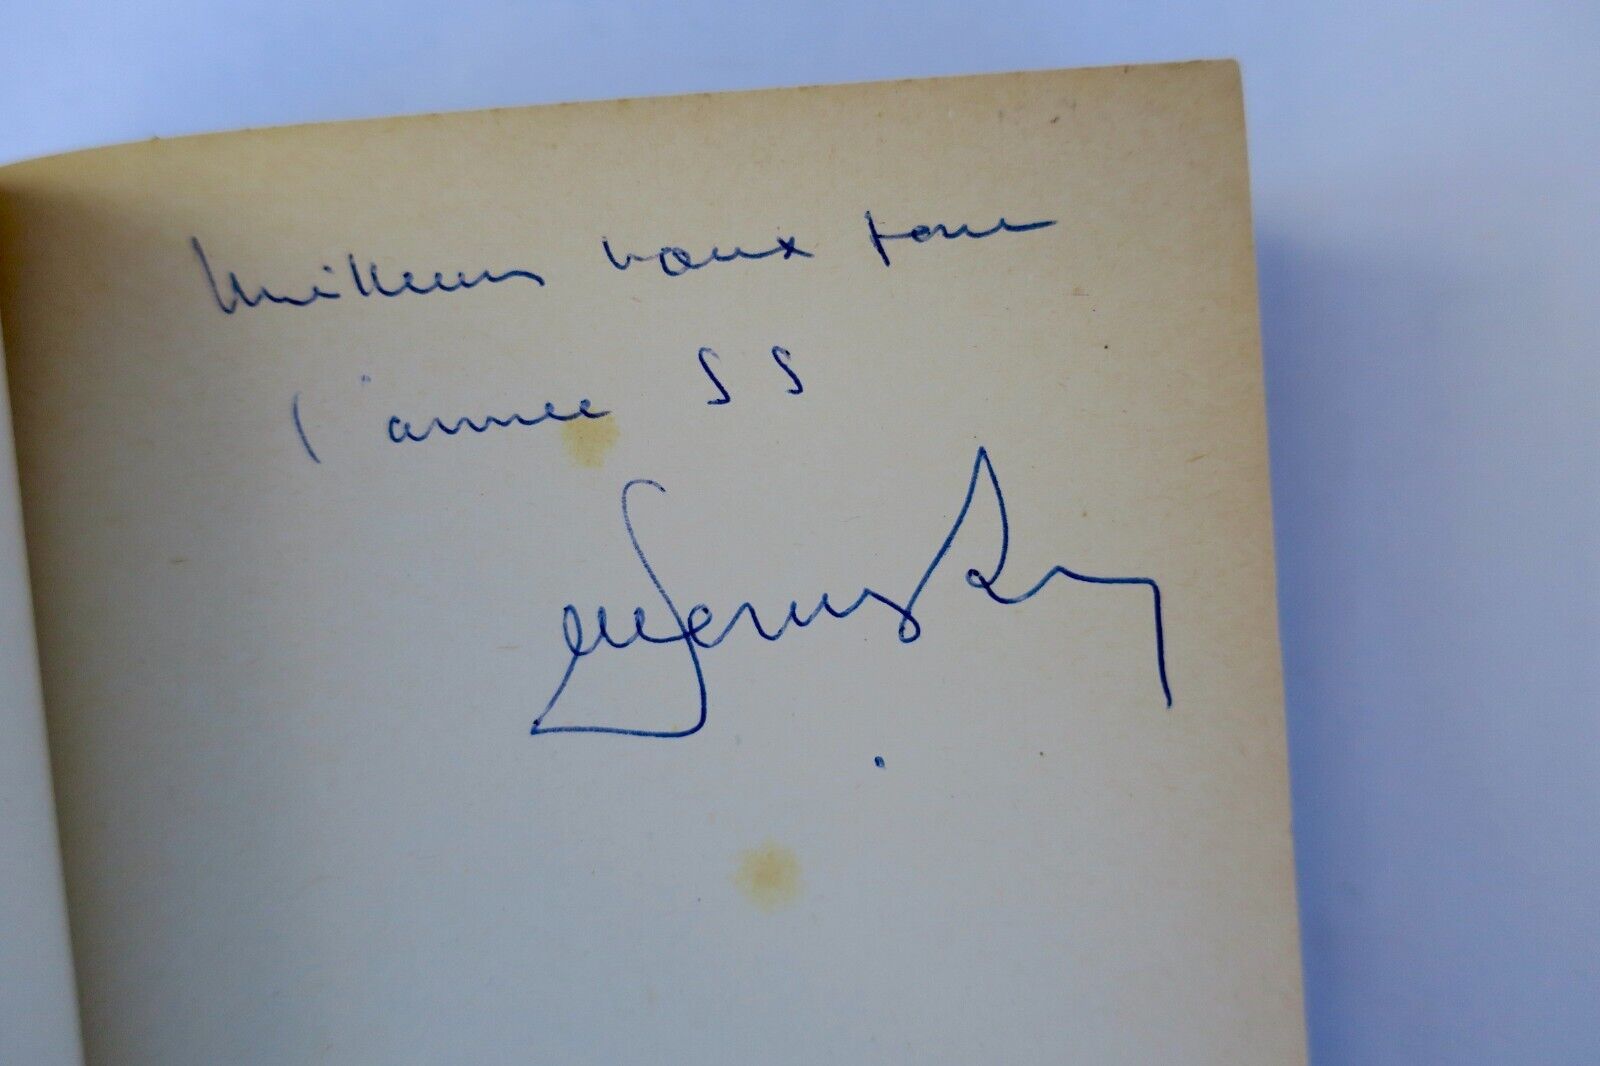 Meilleurs voeux pour
l'année 55